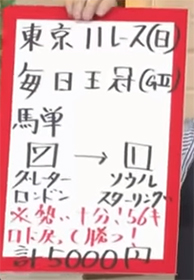 東京11レース(日)
毎日王冠(GⅡ)
馬単
→ 1
グレーター ソウル
ロンドン スターリング
※勢い十分!56キ
ロに戻って勝つ!
計5000円